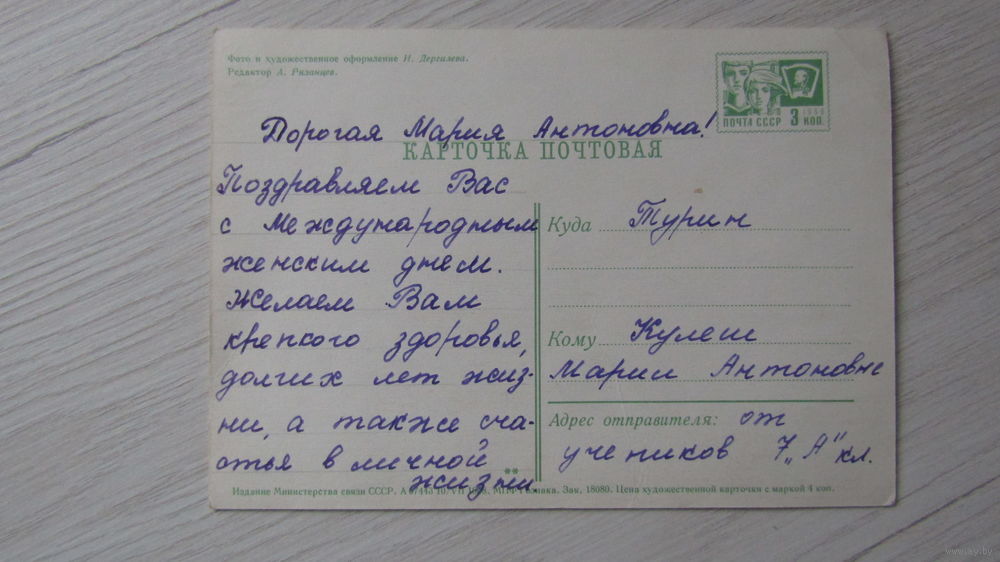 Фото и художественное оформление И. Дергилева.
Редактор А. Рязанцев.
ПОЧТА СССР 3 КОП.
1966
Дорогая Мария Антоновна!
КАРТОЧКА ПОЧТОВАЯ
Поздравляем Вас
с Международным
женским днем.
Желаем Вам
крепкого здоровья,
долгих лет жиз-
ни, а также сча-
стья в личной
жизни.
Куда Турин
Кому Кулеш
Марии Антоновне
Адрес отправителя: от
учеников 7„А" кл.
**
Издание Министерства связи СССР. Зак. 18080. Цена художественной карточки с маркой 4 коп.
www.ay.by